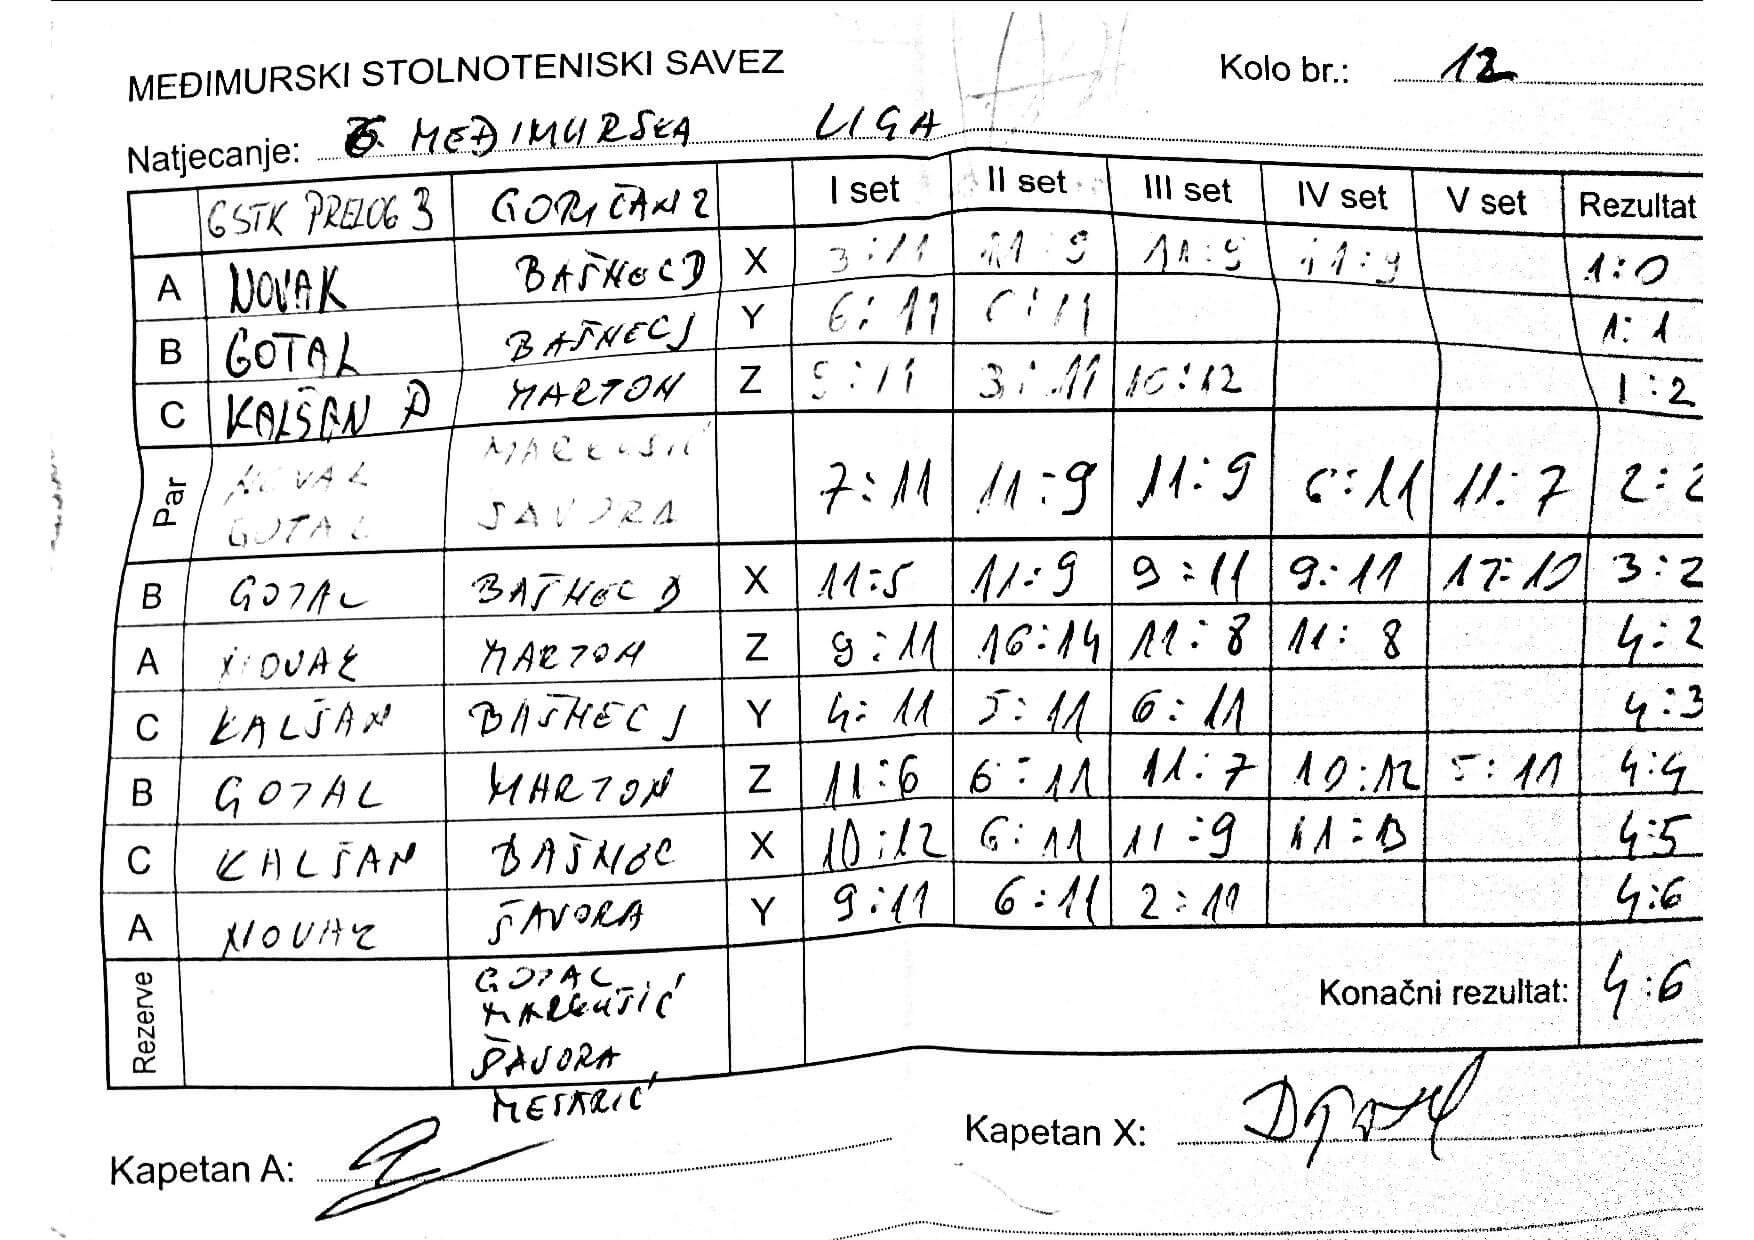 MEĐIMURSKI STOLNOTENISKI SAVEZ Kolo br.: 12
Natjecanje: MEĐIMURSKA LIGA
GSTK PRELOG 3 GORIČAN 2 I set II set III set IV set V set Rezultat
A NOVAK BAŠNEC D X 3:11 11:9 11:9 11:9 1:0
B GOTAL BAŠNEC J Y 6:11 6:11 1:1
C KALŠAN D MARTON Z 5:11 3:11 10:12 1:2
Par NOVAK MARKUŠIĆ 7:11 11:9 11:9 6:11 11:7 2:2
GOTAL SAVORA
B GOTAL BAŠNEC D X 11:5 11:9 9:11 9:11 12:10 3:2
A NOVAK MARTON Z 9:11 16:14 11:8 11:8 4:2
C KALŠAN BAŠNEC J Y 4:11 5:11 6:11 4:3
B GOTAL MARTON Z 11:6 6:11 11:7 10:12 5:11 4:4
C KALŠAN BAŠNEC X 10:12 6:11 11:9 11:13 4:5
A NOVAK ŠAVORA Y 9:11 6:11 2:11 4:6
Rezerve GOTAL Konačni rezultat: 4:6
MARKUŠIĆ
ŠAVORA
MESARIĆ
Kapetan A: Kapetan X: